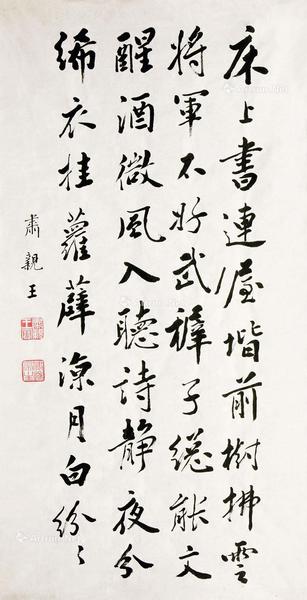 床上書連屋堦前樹拂雲
將軍不好武穉子總能文
醒酒微風入聽詩靜夜分
絺衣挂蘿薜涼月白紛〻
肅親王